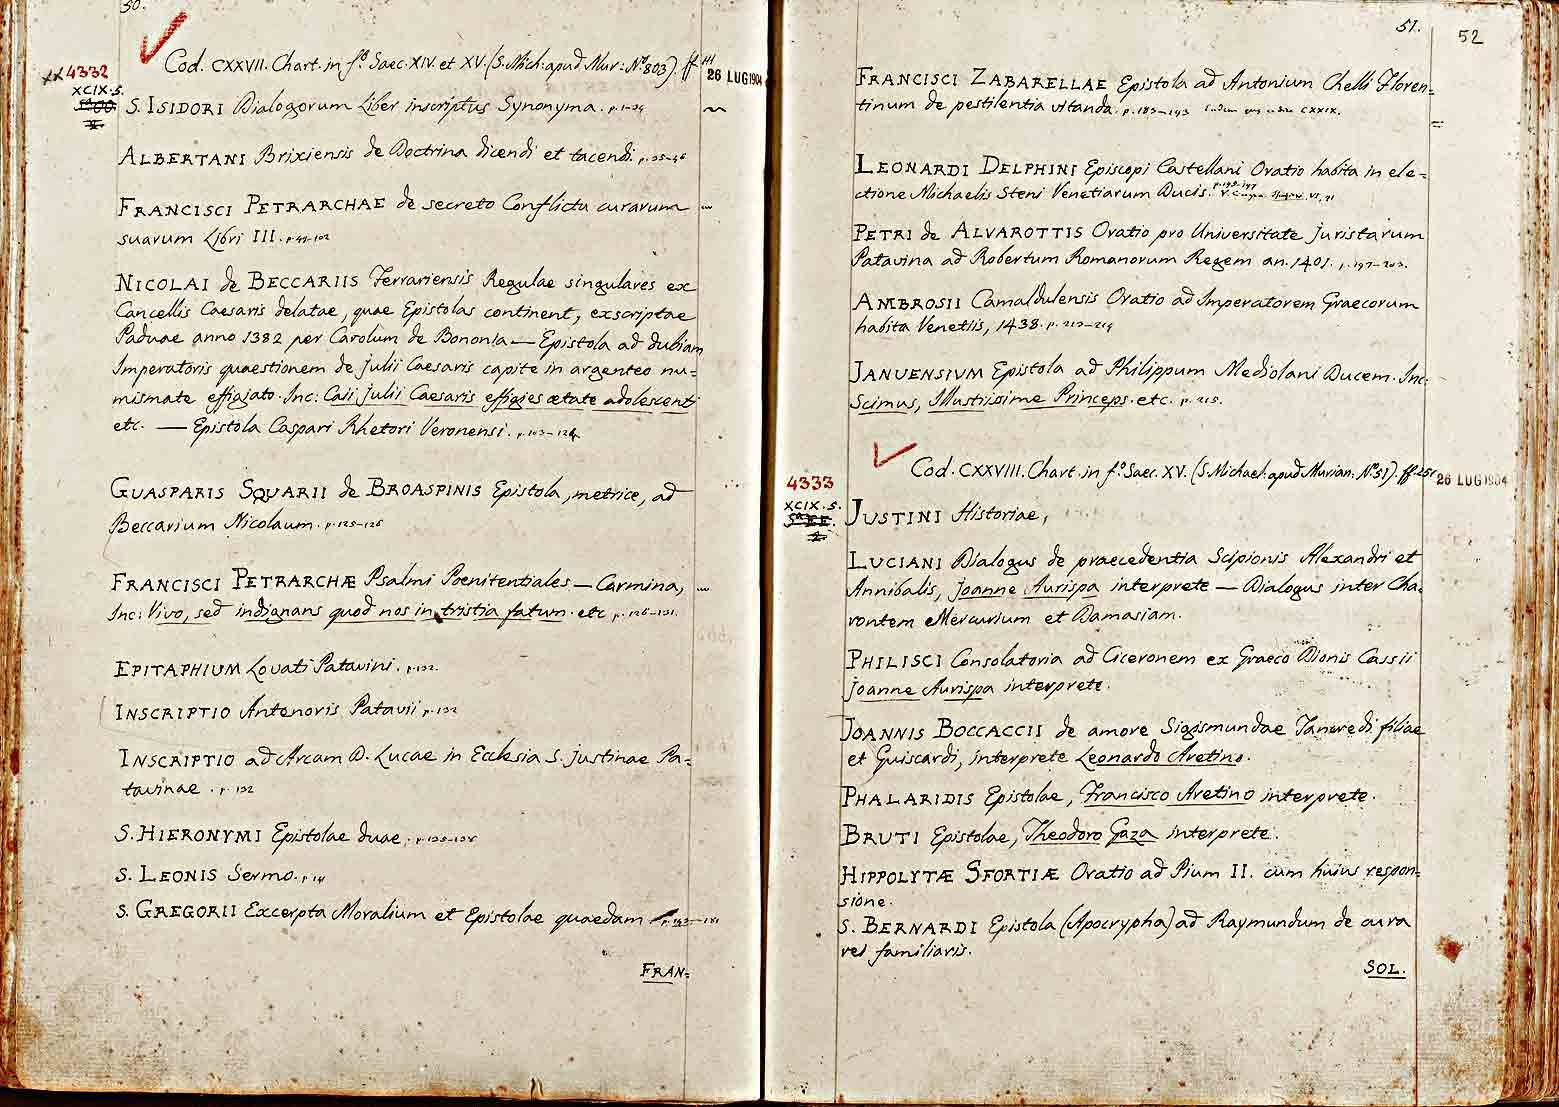 50.
Cod. CXXVII. Chart. in fº. Saec. XIV. et XV. (S. Mich: apud Mur: Nº 803). ff
26 LUG 1904
4332
XCIX. 5.
S. ISIDORI Dialogorum Liber inscriptus Synonyma. p. 1-24
ALBERTANI Brixiensis de Doctrina dicendi et tacendi. p. 35-46
FRANCISCI PETRARCHAE de secreto Conflictu curarum
suarum Libri III. p. 49-102
NICOLAI de BECCARIIS Ferrariensis Regulae singulares ex
Cancellis Caesaris delatae, quae Epistolas continent, exscriptae
Paduae anno 1382 per Carolum de Bononia — Epistola ad dubiam
Imperatoris quaestionem de Julii Caesaris capite in argenteo nu=
mismate effigiato. Inc: Caii Julii Caesaris effigies ætate adolescenti
etc. — Epistola Caspari Rhetori Veronensi. p. 103-124
GUASPARIS SQUARII de BROASPINIS Epistola, metrice, ad
Beccarium Nicolaum. p. 125-126
FRANCISCI PETRARCHÆ Psalmi Poenitentiales — Carmina,
Inc: Vivo, sed indignans quod nos in tristia fatum. etc p. 126-131.
EPITAPHIUM Lovati Patavini. p. 132.
INSCRIPTIO Antenoris Patavii p. 132
INSCRIPTIO ad Arcam D. Lucae in Ecclesia S. Justinae Pa=
tavinae. p. 132
S. HIERONYMI Epistolae duae. p. 133-138
S. LEONIS Sermo. p. 141
S. GREGORII Excerpta Moralium et Epistolae quaedam p. 143-181
FRAN=
51.
52
FRANCISCI ZABARELLAE Epistola ad Antonium Chelli Floren=
tinum de pestilentia vitanda. p. 183-193 CXXIX.
LEONARDI DELPHINI Episcopi Castellani Oratio habita in ele=
ctione Michaelis Steni Venetiarum Ducis. p. 195-197
PETRI de ALVAROTTIS Oratio pro Universitate Juristarum
Patavina ad Robertum Romanorum Regem an. 1401. p. 197-203.
AMBROSII Camaldulensis Oratio ad Imperatorem Graecorum
habita Venetiis, 1438. p. 213-214
JANUENSIUM Epistola ad Philippum Mediolani Ducem. Inc:
Scimus, Illustrissime Princeps. etc. p. 215.
Cod. CXXVIII. Chart. in fº. Saec. XV. (S. Michael. apud Murian: Nº 51). ff 251
26 LUG 1904
4333
XCIX. 5.
2.
JUSTINI Historiae,
LUCIANI Dialogus de praecedentia Scipionis Alexandri et
Annibalis, Joanne Aurispa interprete — Dialogus inter Cha=
rontem Mercurium et Damasiam.
PHILISCI Consolatoria ad Ciceronem ex Graeco Dionis Cassii
Joanne Aurispa interprete.
JOANNIS BOCCACCII de amore Sigismundae Tancredi filiae
et Guiscardi, interprete Leonardo Aretino.
PHALARIDIS Epistolae, Francisco Aretino interprete.
BRUTI Epistolae, Theodoro Gaza interprete.
HIPPOLYTÆ SFORTIÆ Oratio ad Pium II. cum huius respon=
sione.
S. BERNARDI Epistola (Apocrypha) ad Raymundum de cura
rei familiaris.
SOL.